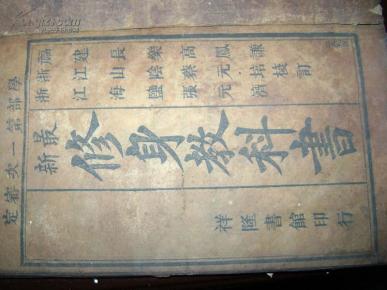 學部第一次審定
福建長樂高鳳謙
浙江山陰蔡元培
浙江海鹽張元濟
校訂
最新
修身教科書
祥隆書館印行